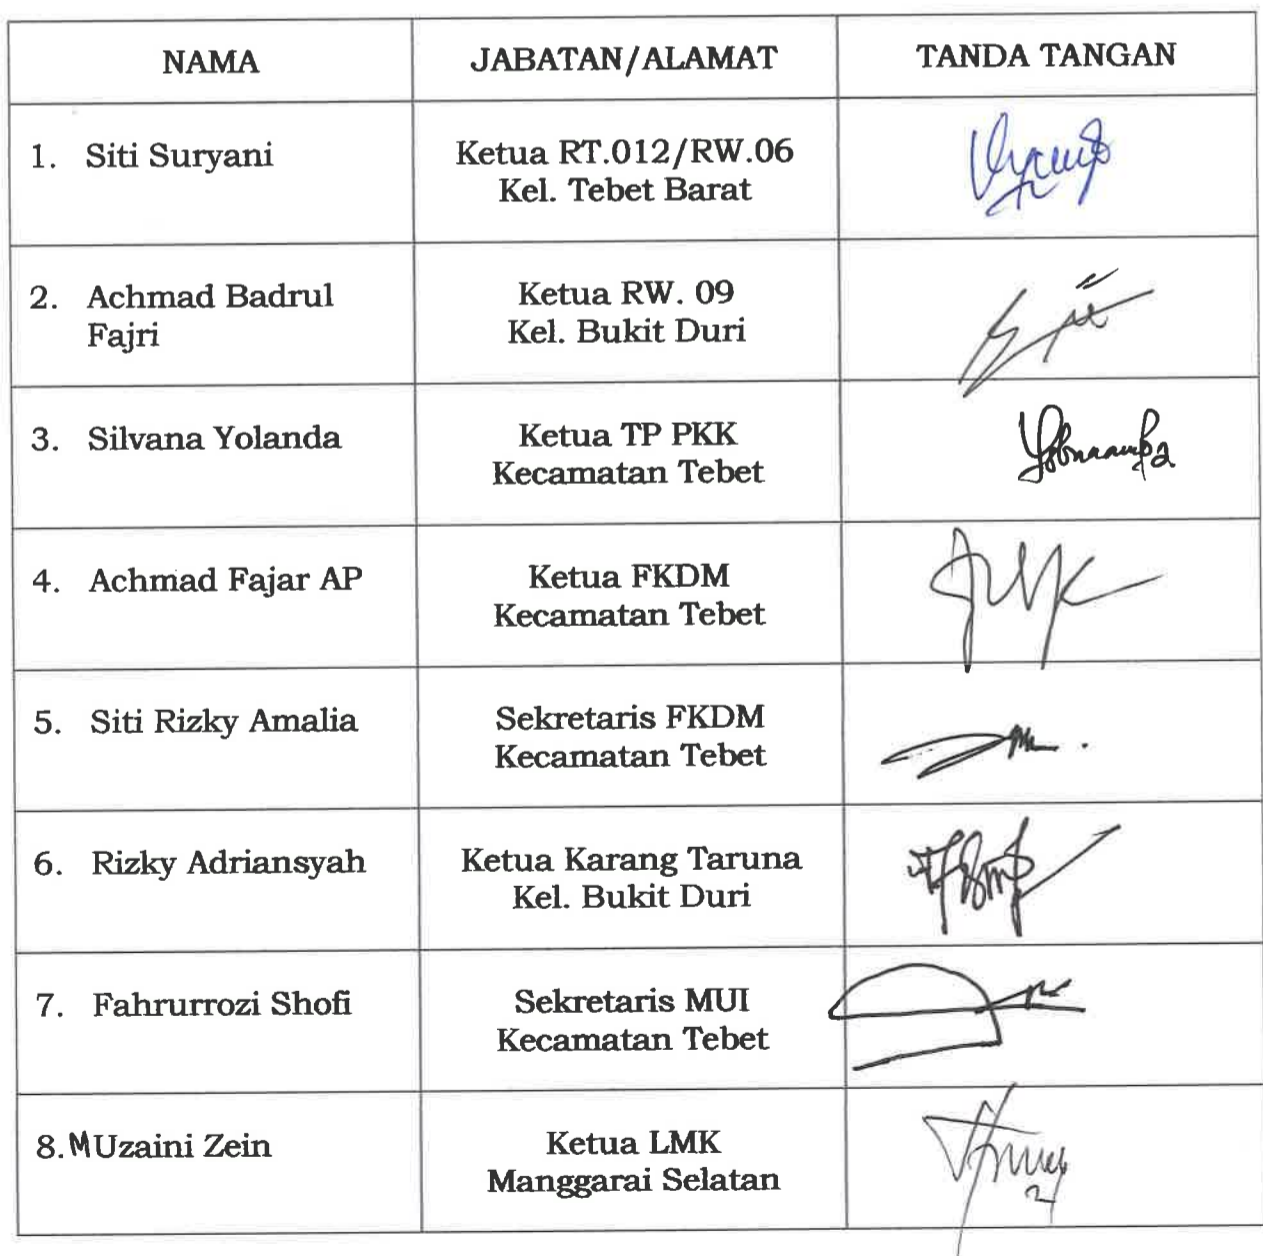 NAMA JABATAN/ALAMAT TANDA TANGAN
1. Siti Suryani Ketua RT.012/RW.06
Kel. Tebet Barat
2. Achmad Badrul Ketua RW. 09
Fajri Kel. Bukit Duri
3. Silvana Yolanda Ketua TP PKK
Kecamatan Tebet
4. Achmad Fajar AP Ketua FKDM
Kecamatan Tebet
5. Siti Rizky Amalia Sekretaris FKDM
Kecamatan Tebet
6. Rizky Adriansyah Ketua Karang Taruna
Kel. Bukit Duri
7. Fahrurrozi Shofi Sekretaris MUI
Kecamatan Tebet
8. MUzaini Zein Ketua LMK
Manggarai Selatan